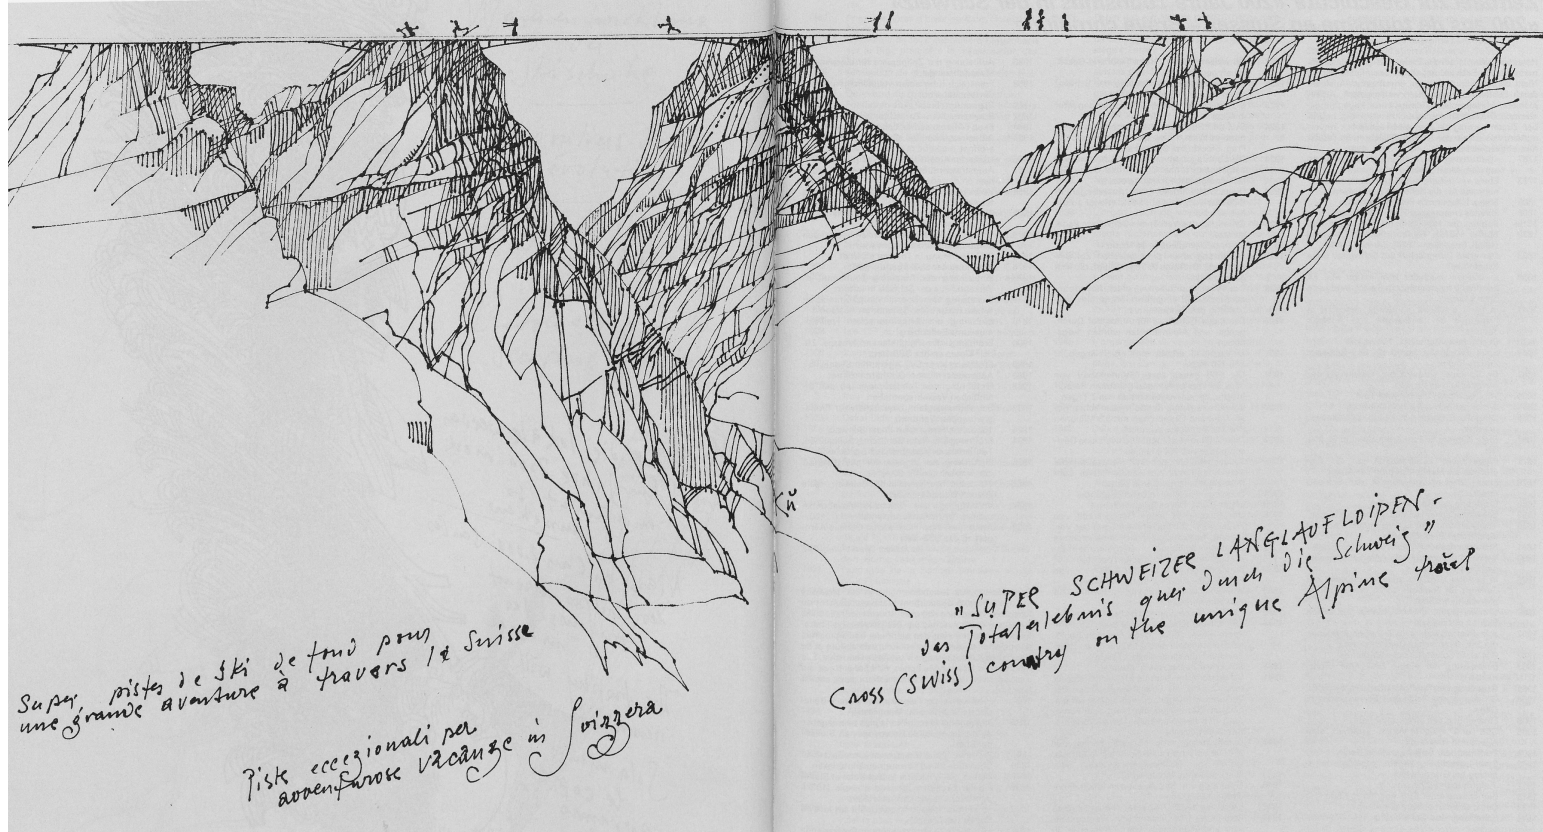 Super, pistes de ski de fond pour
une grande aventure à travers la Suisse
Piste eccezionali per
avventurose vacanze in Svizzera
"SUPER SCHWEIZER LANGLAUFLOIPEN -
das Totalerlebnis quer durch die Schweiz"
Cross (Swiss) country on the unique Alpine trail